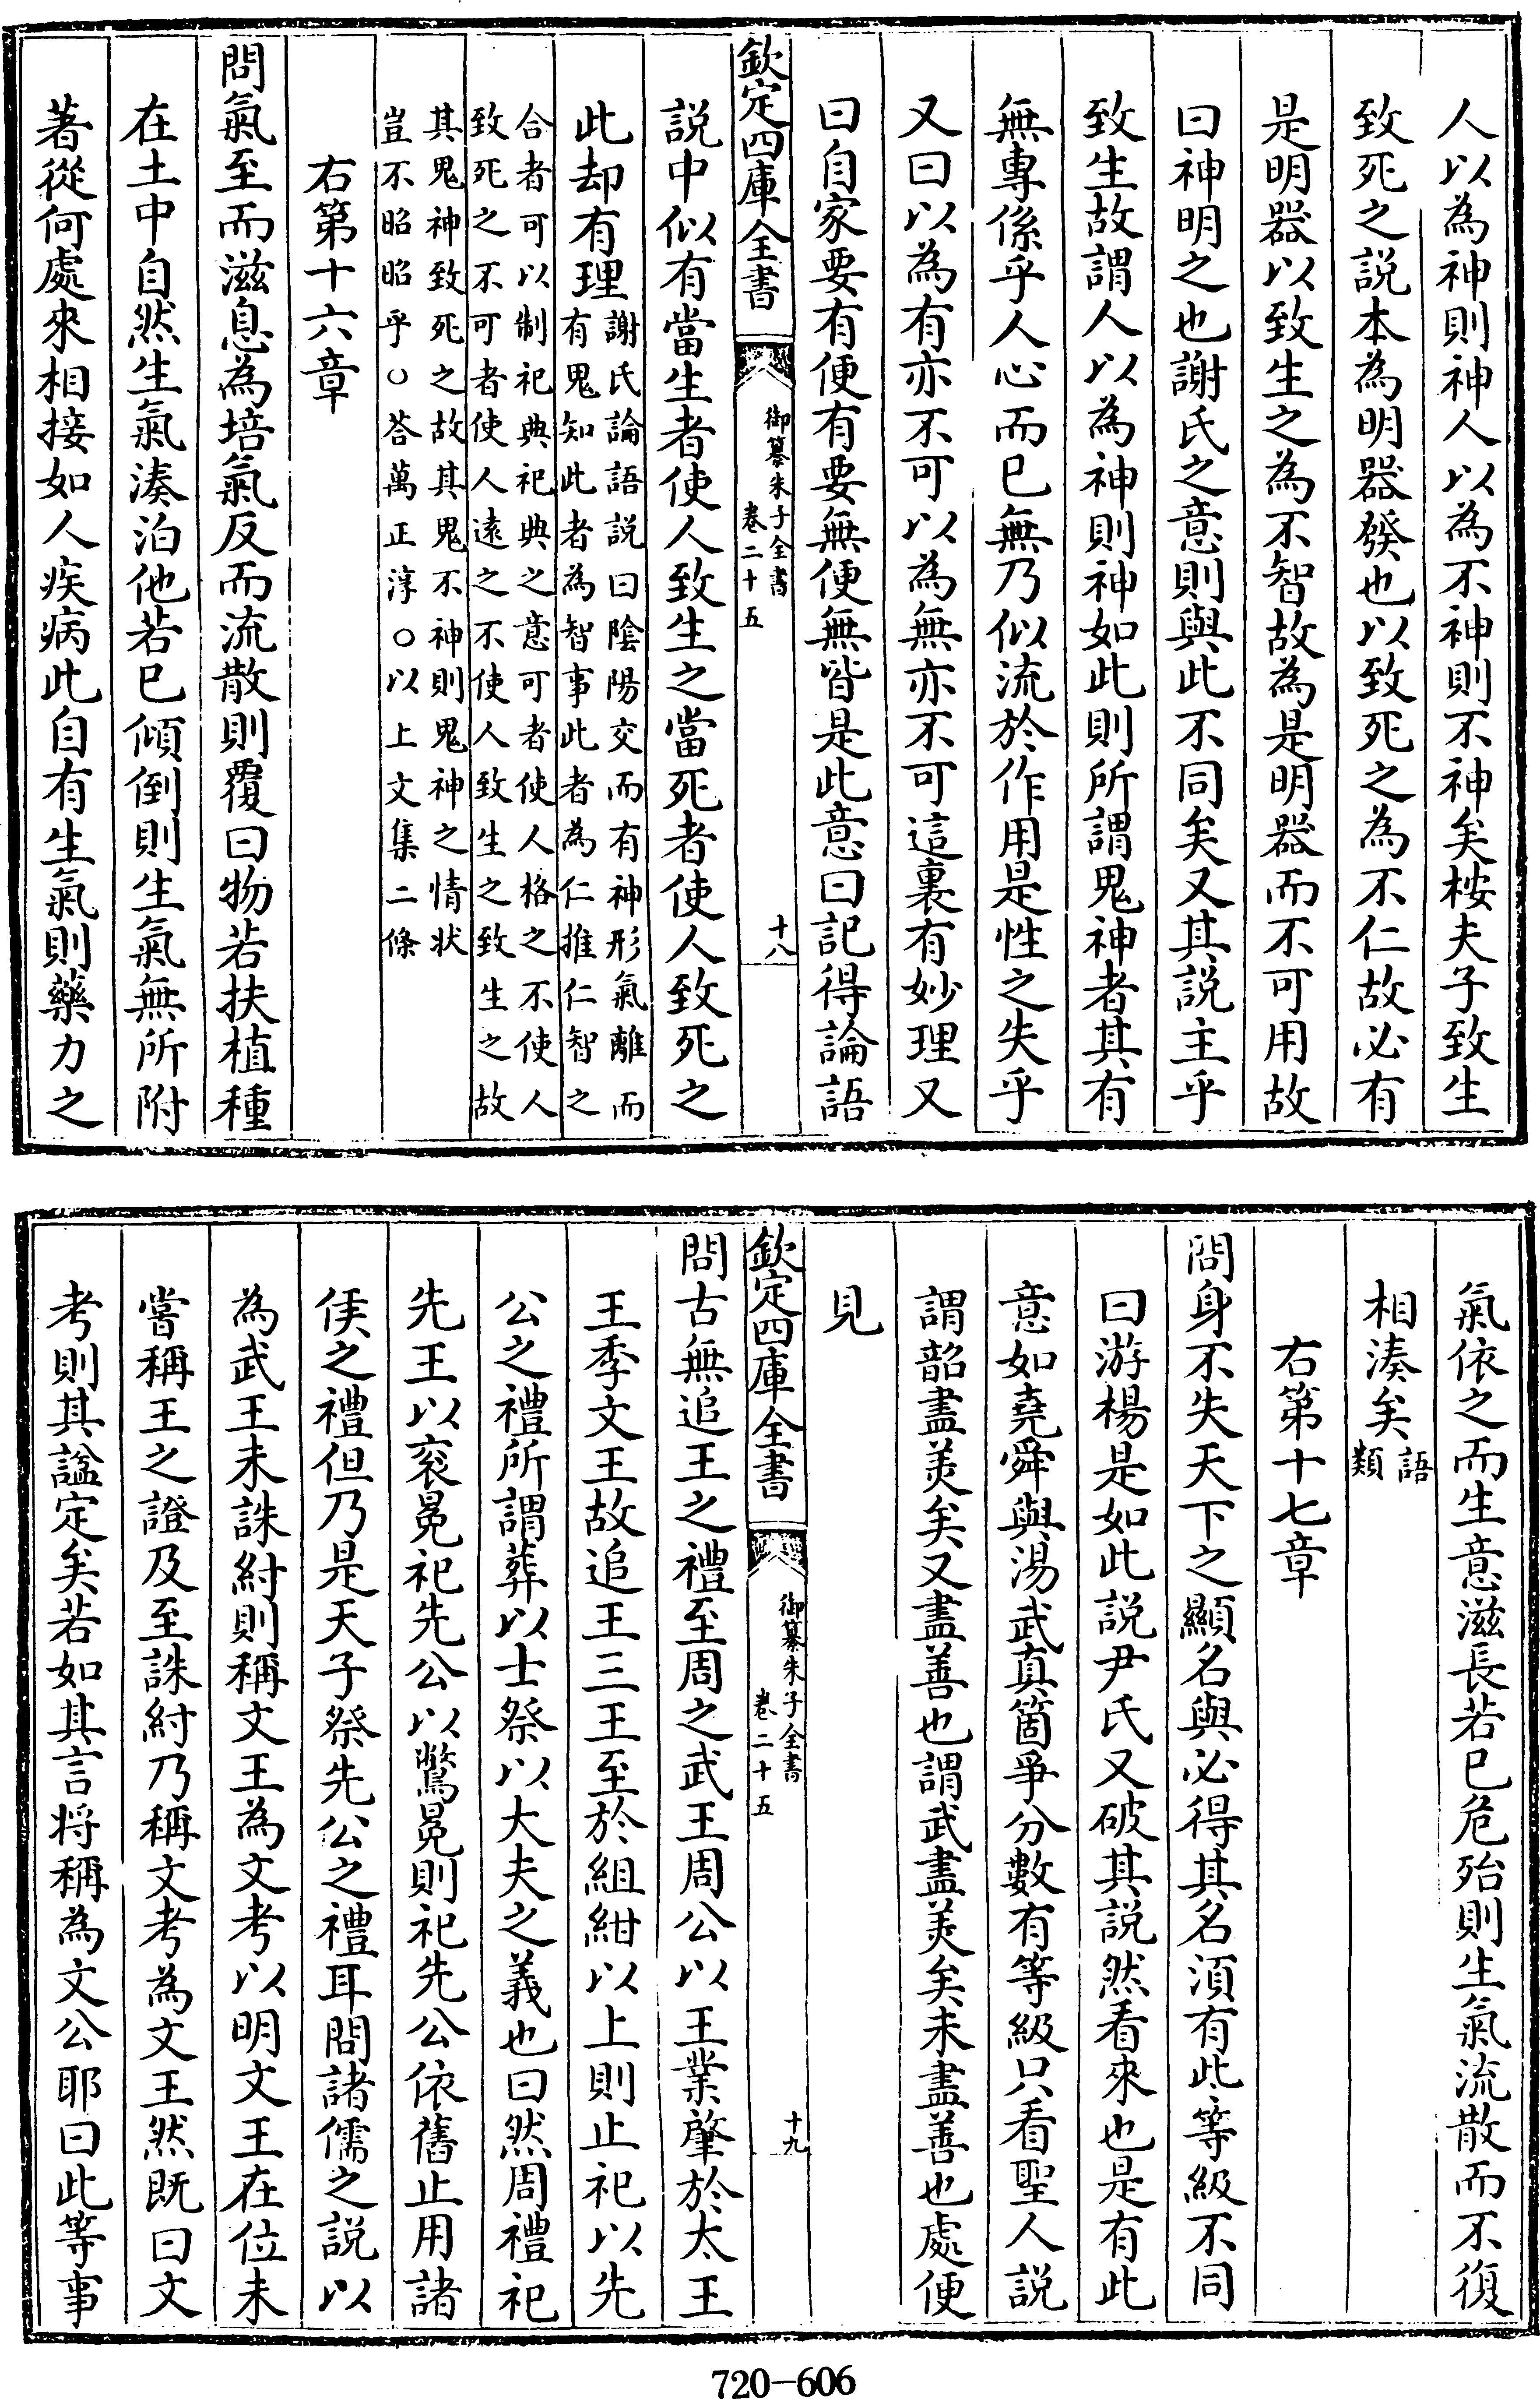 人以為神則神人以為不神則不神矣桉夫子致生
致死之説本為明器發也以致死之為不仁故必有
是明器以致生之為不智故為是明器而不可用故
曰神明之也謝氏之意則與此不同矣又其説主乎
致生故謂人以為神則神如此則所謂鬼神者其有
無專係乎人心而已無乃似流於作用是性之失乎
又曰以為有亦不可以為無亦不可這裏有妙理又
曰自家要有便有要無便無皆是此意曰記得論語
欽定四庫全書
御纂朱子全書
卷二十五
十八
説中似有當生者使人致生之當死者使人致死之
此却有理
謝氏論語説曰陰陽交而有神形氣離而
有鬼知此者為智事此者為仁推仁智之
合者可以制祀典祀典之意可者使人格之不使人
致死之不可者使人遠之不使人致生之致生之故
其鬼神致死之故其鬼不神則鬼神之情状
豈不昭昭乎○荅萬正淳○以上文集二條
右第十六章
問氣至而滋息為培氣反而流散則覆曰物若扶植種
在土中自然生氣湊泊他若已傾倒則生氣無所附
著從何處來相接如人疾病此自有生氣則藥力之
氣依之而生意滋長若已危殆則生氣流散而不復
相湊矣
語
類
右第十七章
問身不失天下之顯名與必得其名湏有此等級不同
曰游楊是如此説尹氏又破其説然看來也是有此
意如堯舜與湯武真箇爭分數有等級只看聖人説
謂韶盡美矣又盡善也謂武盡美矣未盡善也處便
見
欽定四庫全書
御纂朱子全書
卷二十五
十九
問古無追王之禮至周之武王周公以王業肇於太王
王季文王故追王三王至於組紺以上則止祀以先
公之禮所謂葬以士祭以大夫之義也曰然周禮祀
先王以衮冕祀先公以鷩冕則祀先公依舊止用諸
侯之禮但乃是天子祭先公之禮耳問諸儒之説以
為武王未誅紂則稱文王為文考以明文王在位未
嘗稱王之證及至誅紂乃稱文考為文王然既曰文
考則其諡定矣若如其言将稱為文公耶曰此等事
720-606